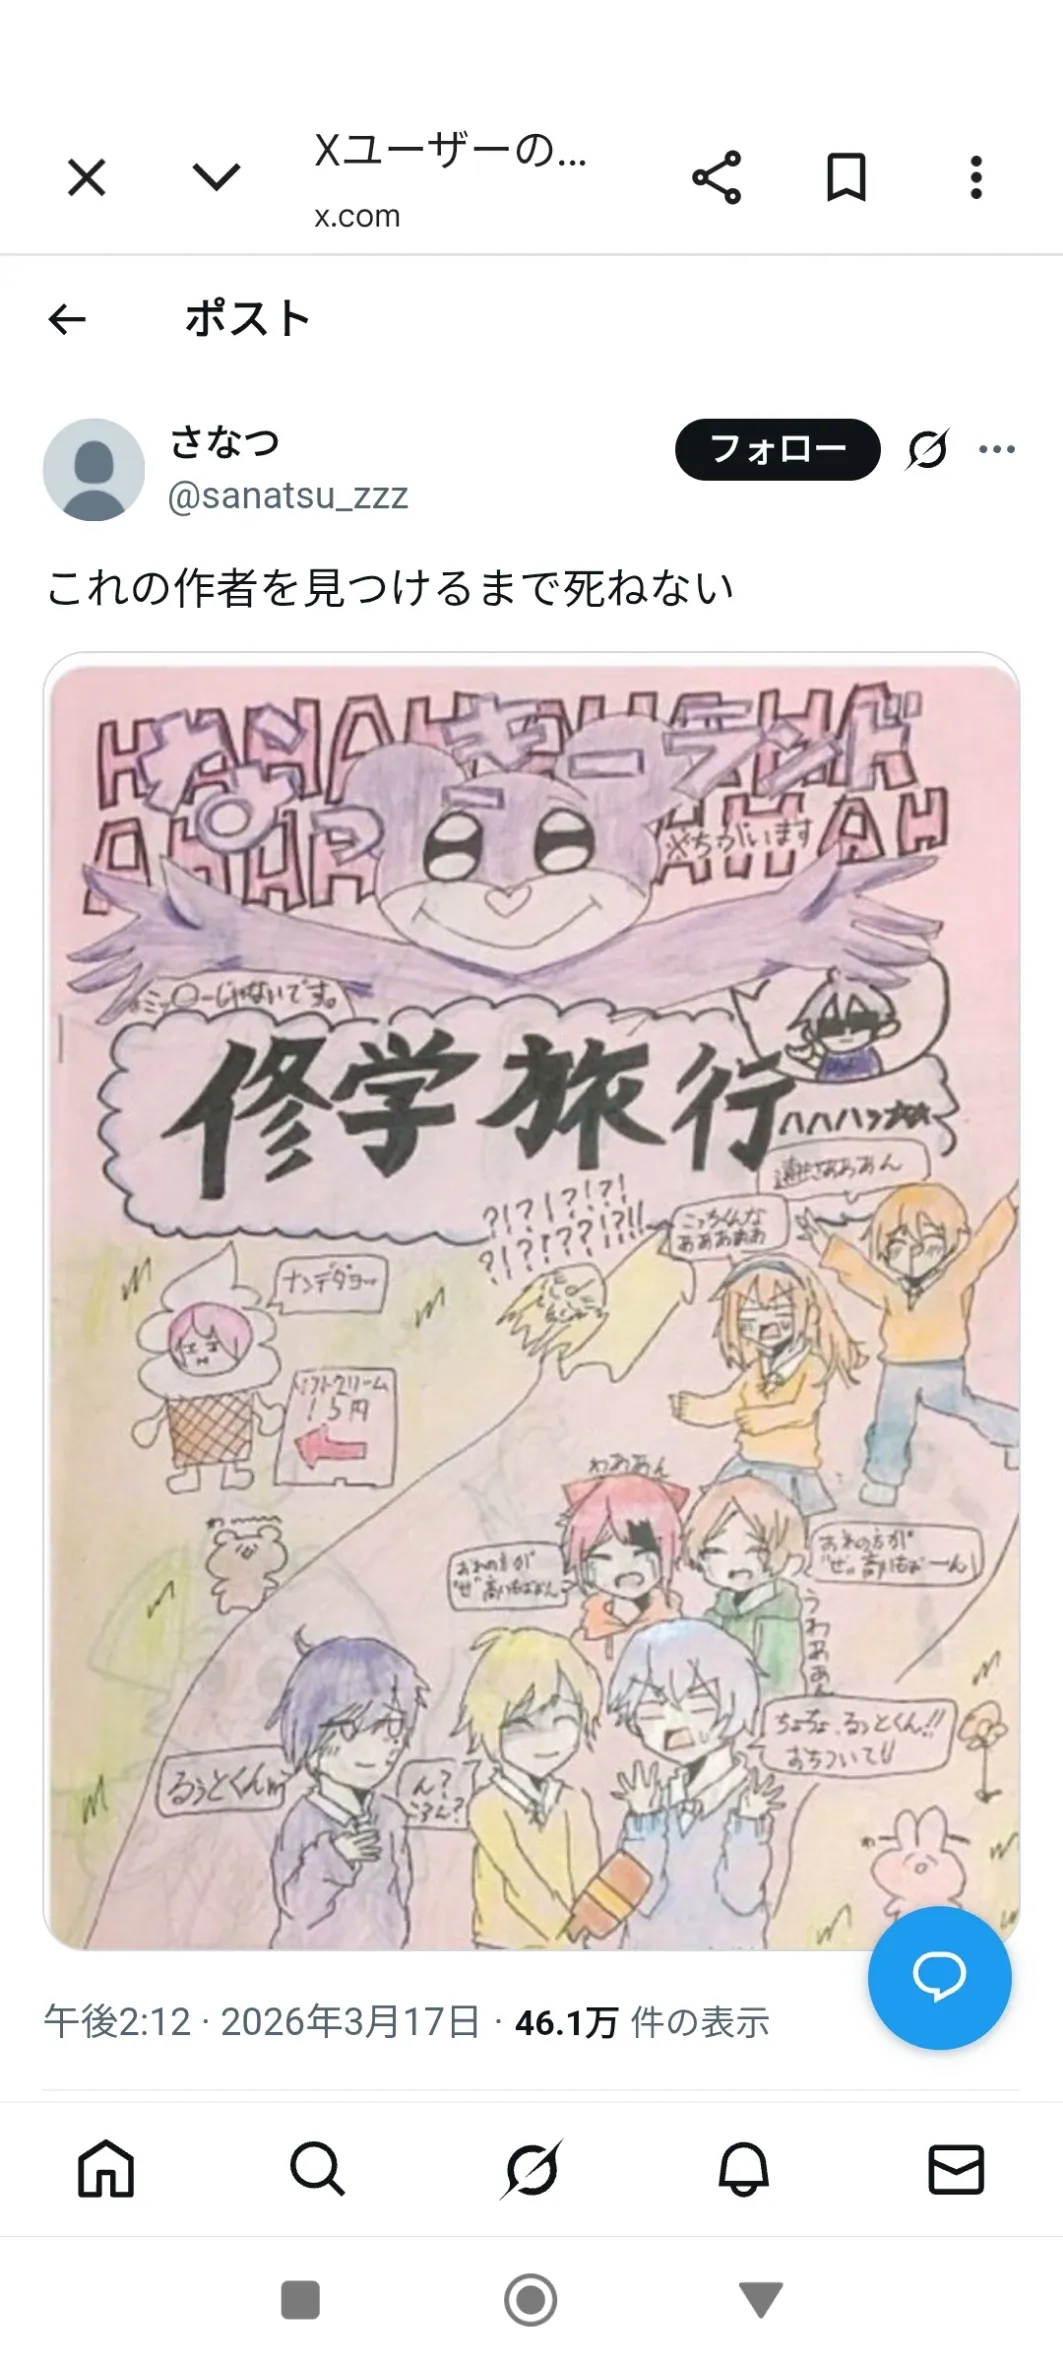 Xユーザーの...
x.com
ポスト
さなつ
@sanatsu_zzz
フォロー
これの作者を見つけるまで死ねない
キーランド
※ちがいます
※ミッ〇ーじゃないです。
修学旅行
ハハハッ
?!?!?!?!
?!?!??!?!!!
こっちくんな
あああああ
ナンデダヨッ
ソフトクリーム
15円
わああん
わー
おれの方が
おれの方が
うわあああ
ちょちょ、るぅとくん!!
おちついて!!
るぅとくんw
ん?
ころん?
わー
午後2:12 · 2026年3月17日 · 46.1万 件の表示